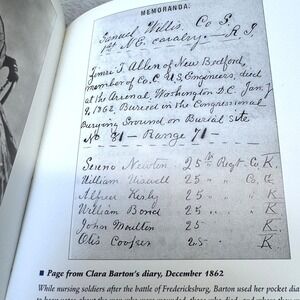 MEMORANDA.
Samuel Willis. Co F.
1st N.C. cavalry. — R. I.
James T. Allen of New Bedford,
member of Co. C U.S. Engineers, died
at the Arsenal, Washington D.C. Jan. 7
2, 1862, Burial in the Congressional
Burying Ground on Burial site
No 81 — Range 71 —
Sereno Newton 25th Regt. Co K.
William 25 " " Co, G.
Alfred 25 " " K
William Bond 25 " " K
John Moulton 25 " " K
Otis Cooper 25 - " K
■ Page from Clara Barton's diary, December 1862
While nursing soldiers after the battle of Fredericksburg, Barton used her pocket dia